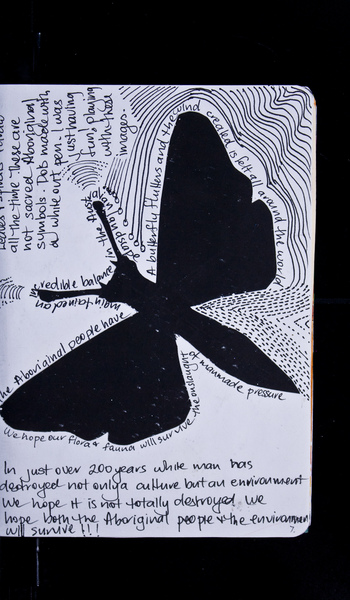 at the time. These are
not sacred Aboriginal
symbols. Dots made with
a white out pen. I was
Just having
fun, playing
with these
images.
A butterfly flutters and the wind created is felt all around the world
The Aboriginal people have
maintained an
incredible balance in the
We hope our flora & fauna will survive the onslaught
of manmade pressure
In just over 200 years white man has
destroyed not only a culture but an environment
We hope it is not totally destroyed. We
hope both the Aboriginal people & the environment
will survive!!!
7.